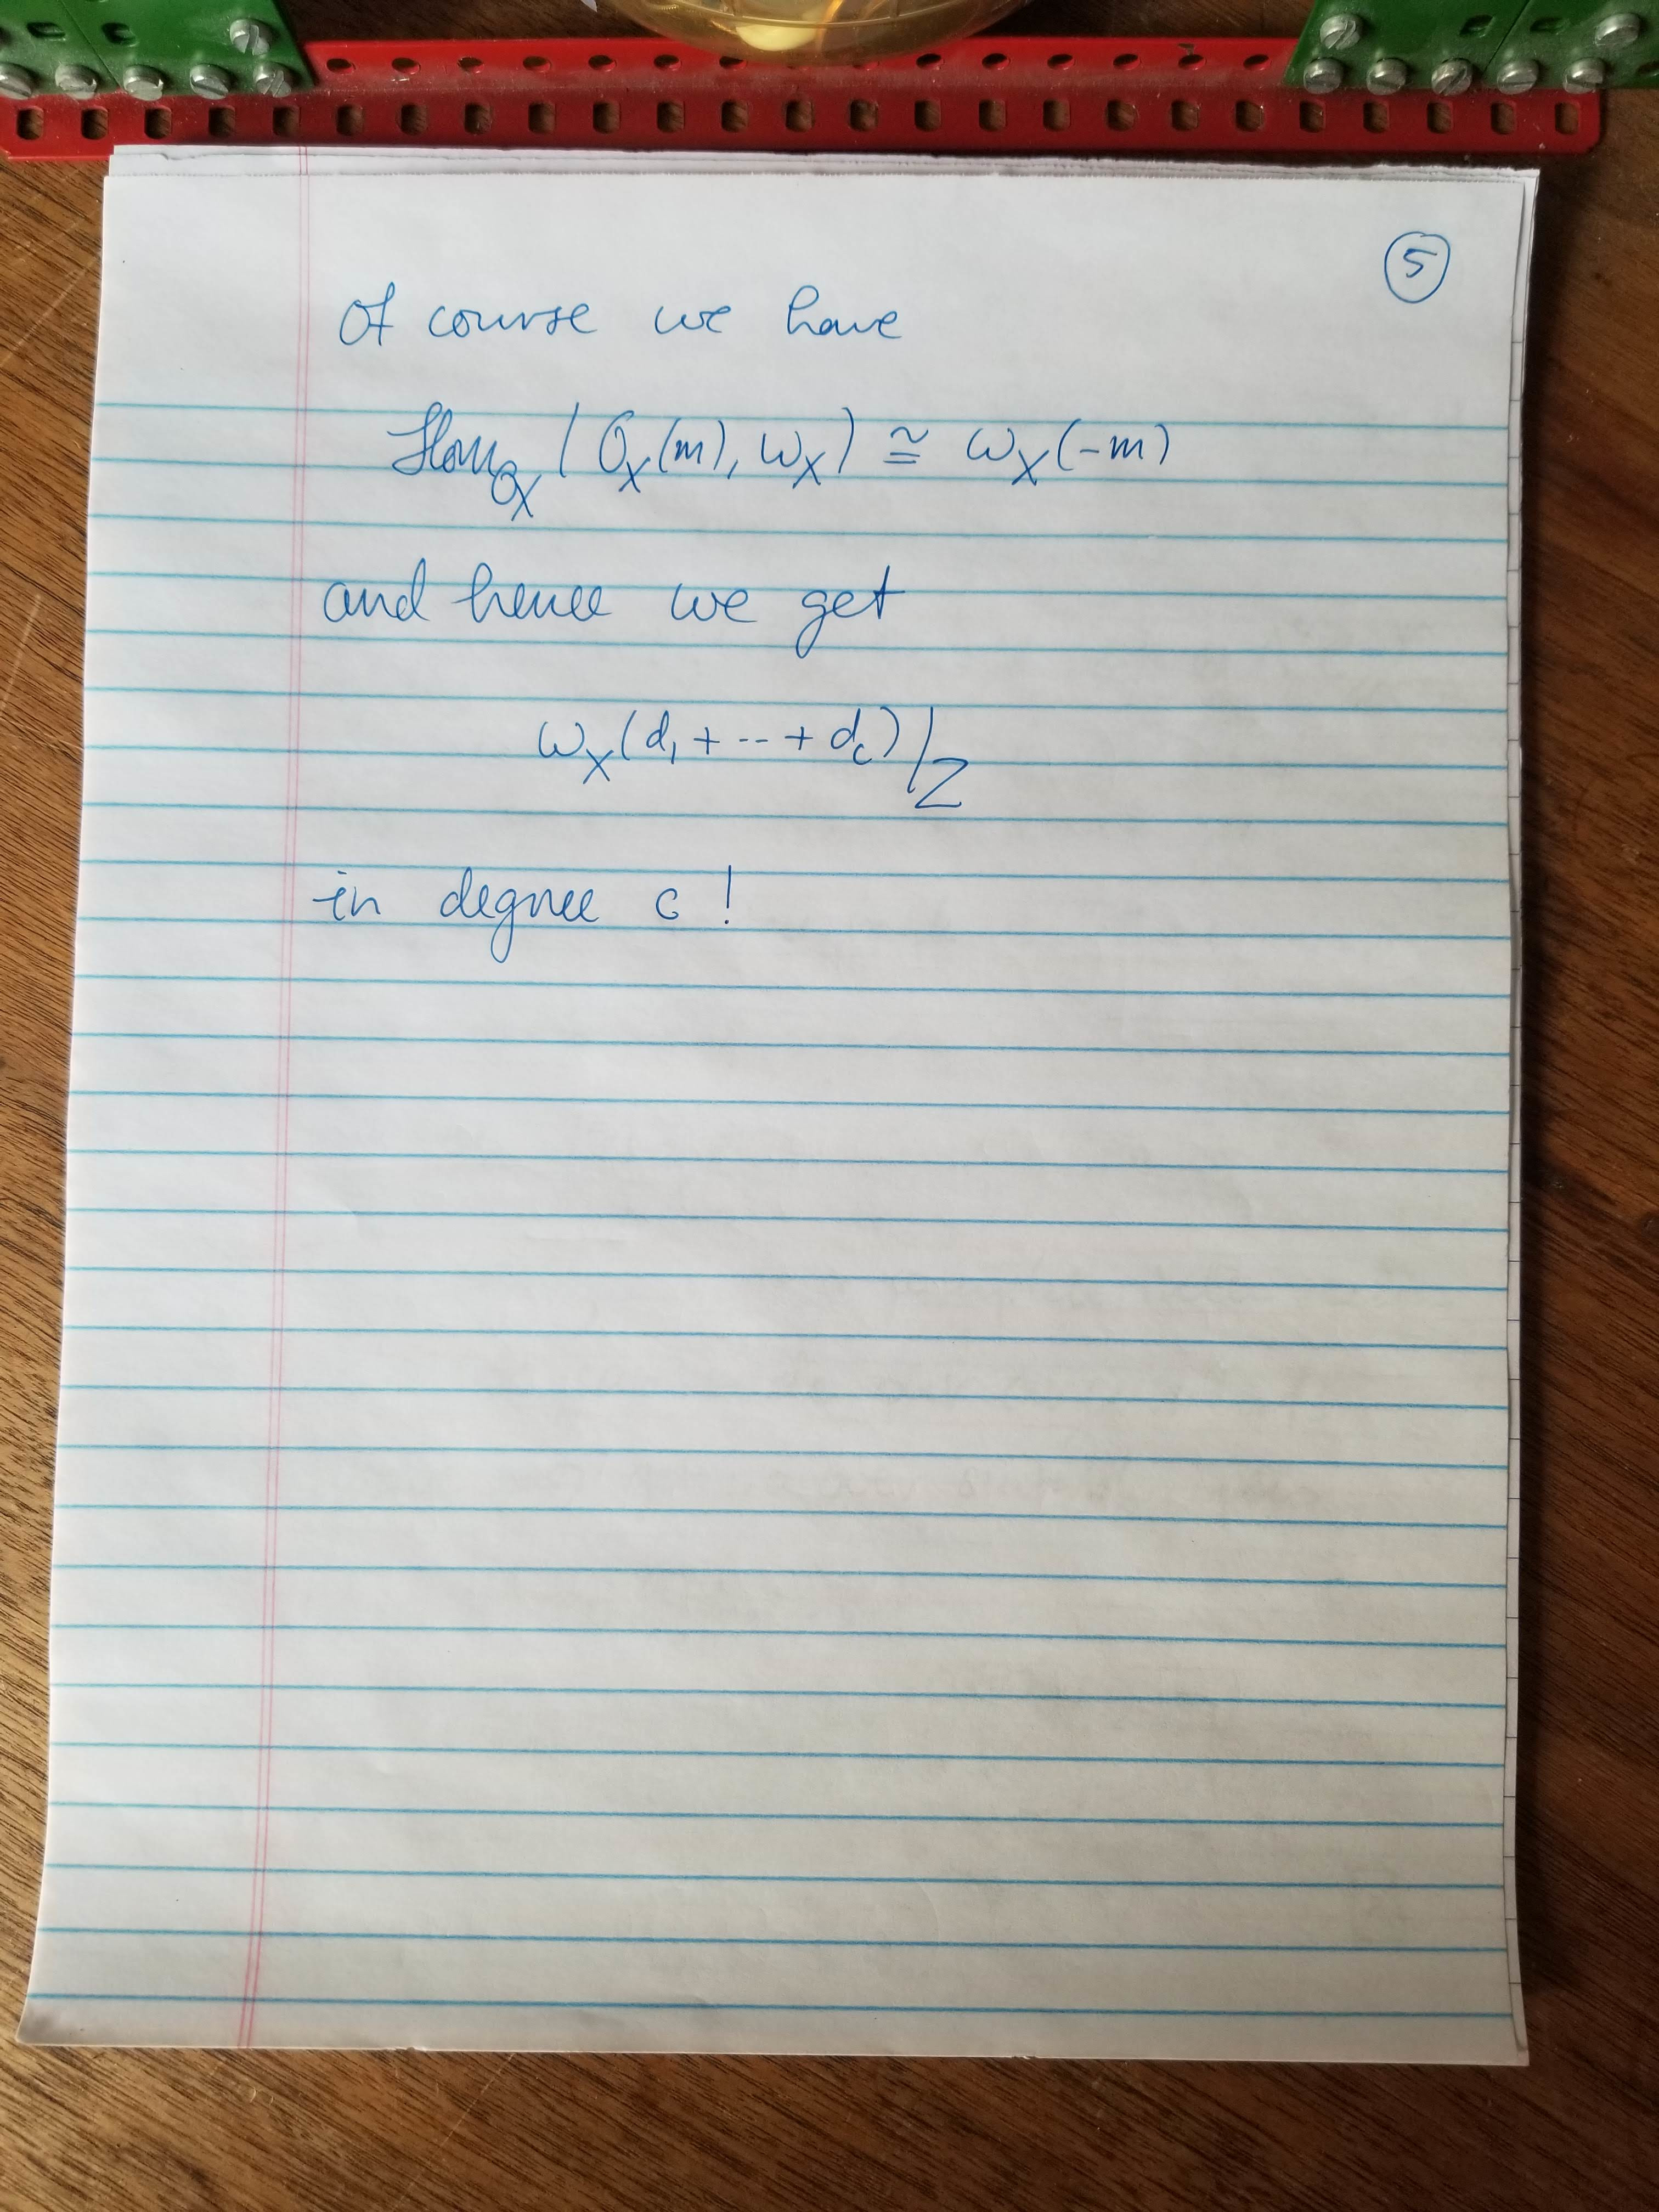 5
Of course we have
Hom_{O_X}(O_X(m), ω_X) ≅ ω_X(-m)
and hence we get
ω_X(d_1 + -- + d_c)|_Z
in degree c!